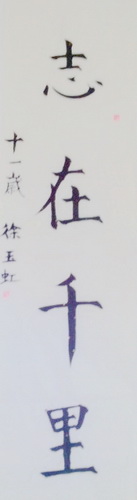 志在千里
十一歲 徐玉虹